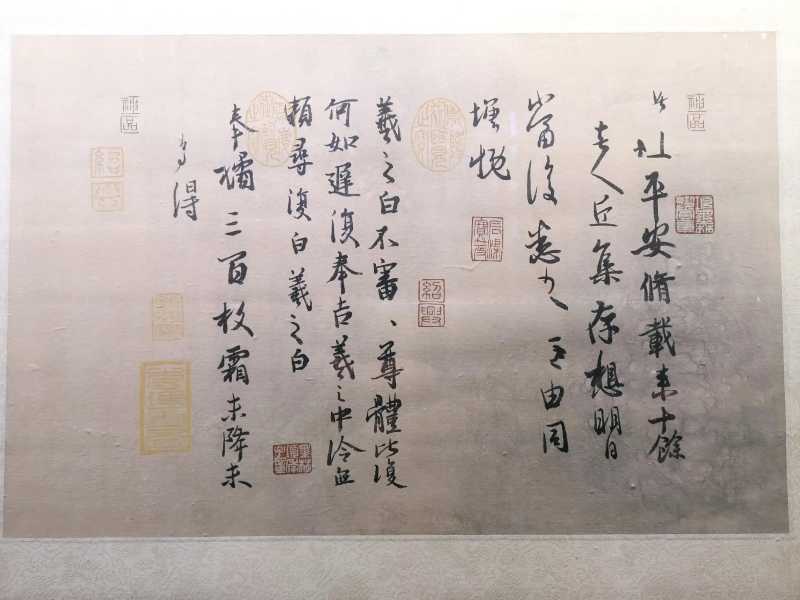 此粗平安脩載來十餘
諸人近集存想明日
當復悉來無由同
增慨
羲之白不審、尊體比復
何如遲復奉告羲之中冷無
賴尋復白羲之白
奉橘三百枚霜未降未
可多得
紹興